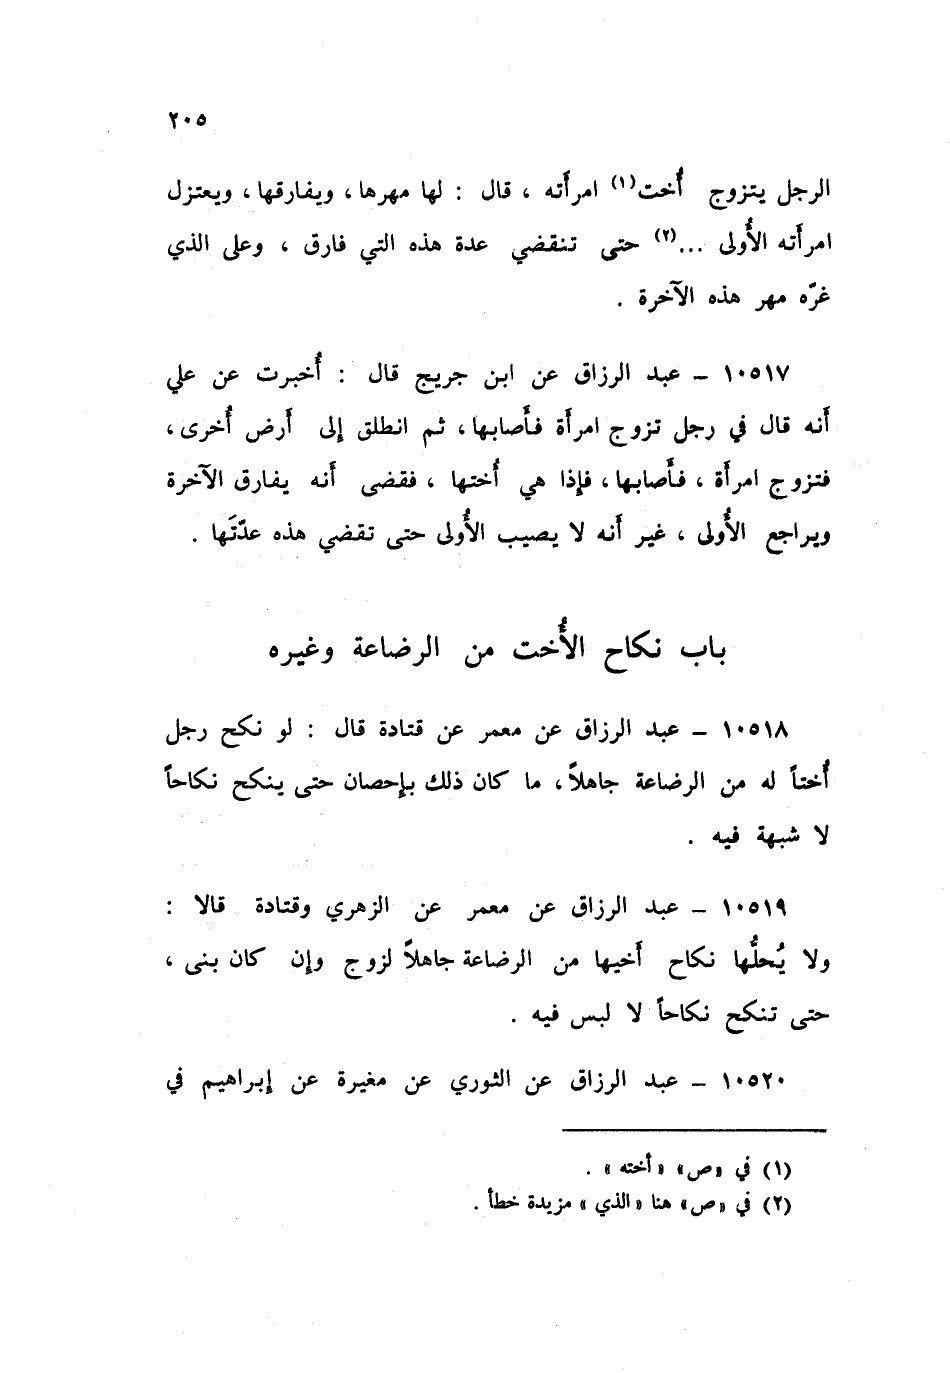 ٢٠٥
الرجل يتزوج أُخت(١) امرأَته ، قال : لها مهرها ، ويفارقها ، ويعتزل
امرأَته الأُولى ...(٢) حتى تنقضي عدة هذه التي فارق ، وعلى الذي
غرّه مهر هذه الآخرة .
١٠٥١٧ ـ عبد الرزاق عن ابن جريج قال : أُخبرت عن علي
أَنه قال في رجل تزوج امرأَة فأَصابها ، ثم انطلق إلى أَرض أُخرى ،
فتزوج امرأَة ، فأَصابها ، فإذا هي أُختها ، فقضى أَنه يفارق الآخرة
ويراجع الأُولى ، غير أَنه لا يصيب الأُولى حتى تقضي هذه عدّتَها .
باب نكاح الأُخت من الرضاعة وغيره
١٠٥١٨ ـ عبد الرزاق عن معمر عن قتادة قال : لو نكح رجل
أُختاً له من الرضاعة جاهلاً ، ما كان ذلك بإحصان حتى ينكح نكاحاً
لا شبهة فيه .
١٠٥١٩ ـ عبد الرزاق عن معمر عن الزهري وقتادة قالا :
ولا يُحلُّها نكاح أَخيها من الرضاعة جاهلاً لزوج وإن كان بنى ،
حتى تنكح نكاحاً لا لبس فيه .
١٠٥٢٠ ـ عبد الرزاق عن الثوري عن مغيرة عن إبراهيم في
(١) في «ص» «أخته» .
(٢) في «ص» هنا «الذي» مزيدة خطأ .